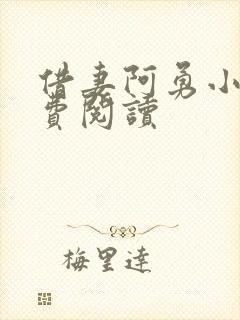 借妻阿勇小
費閱讀
梅里達